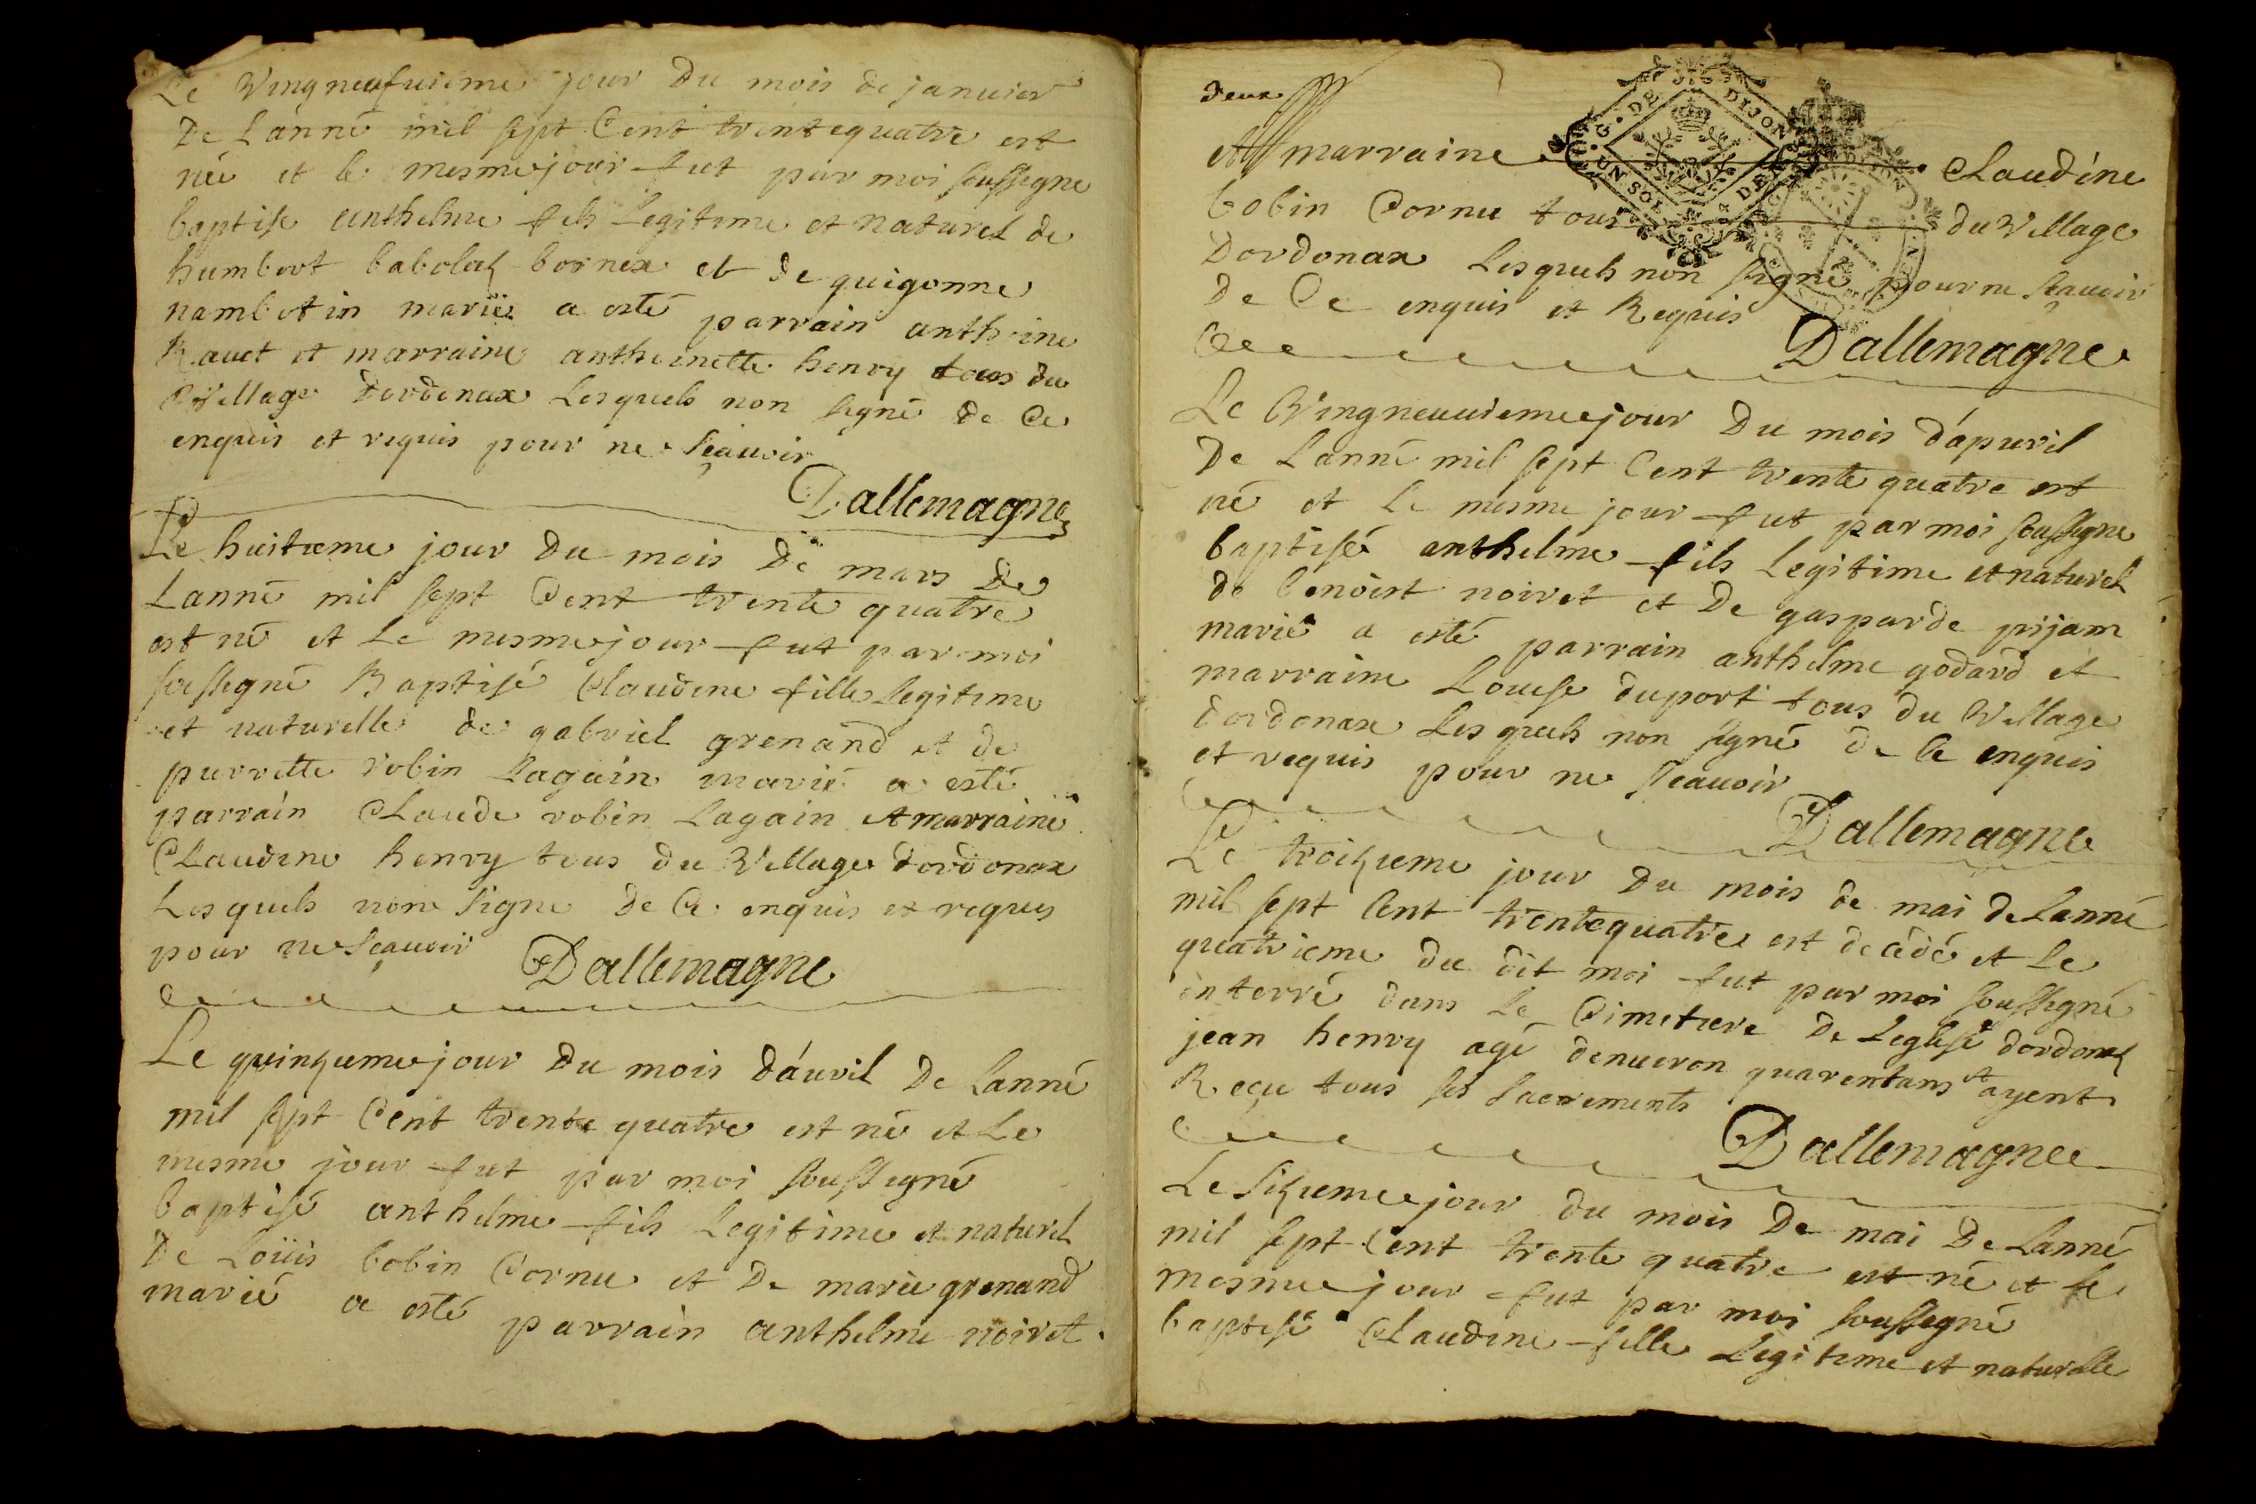 Le Vingneufuieme jour Du mois de januier
De Lanné mil sept Cent trentequatre est
né et le mesme jour fut par moi soussigne
baptise anthelme fils Legitime et naturel de
humbert babolaz bornex et de guigonne
nambotin marié a esté parrain anthoine
Ravet et marraine anthoinette henry tous du
Village dordonax Lesquels non signé de Ce
enquis et requis pour ne sçauoir
Dallemagne
Le huitieme jour Du mois De mars De
Lanné mil sept Cent trente quatre
est né et Le mesme jour fut par moi
soussegné Baptisé Claudine fille legitime
et naturelle de gabriel grenand et de
perrette robin Lagain marié a esté
parrain Claude robin Lagain et marraine
Claudine henry tous du Village dordonax
Lesquels non signe De Ce enquis et requis
pour ne sçauoir Dallemagne
Le quinzieme jour Du mois dáuril De Lanné
mil sept Cent trente quatre est né et Le
mesme jour fut par moi soussigné
baptisé anthelme fils Legitime et naturel
De Loüis bobin Cornu et De marie grenand
marié a esté parrain anthelme noiret
Deux
et marraine Claudine
G. DE DIJON
UN SOL
bobin Cornu tous du Village
Dordonax Lesquels non signé pour ne sçauoir
De Ce enquis et Requis
Dallemagne
Le Vingneuuieme jour Du mois dápuril
De Lanné mil sept Cent trente quatre est
né et Le mesme jour fut par moi soussigne
baptisé anthelme fils Legitime et naturel
de benoist noiret et De gasparde prijam
marié a esté parrain anthelme godard et
marraine Louise duport tous du Village
dordonax Lesquels non signé de Ce enquis
et requis pour ne sceauoir
Dallemagne
Le troizieme jour Du mois de mai de Lanné
mil sept Cent trentequatre est decédé et Le
quatrieme du dit moi fut par moi soussigné
interré dans Le Cimetiere De Leglise dordonaz
jean henry agé denueron quarentans et ayent
Reçu tous ses sacrements
Dallemagne
Le sizieme jour du mois De mai De Lanné
mil sept Cent trente quatre est né et le
mesme jour fut par moi soussegné
baptisé Claudine fille Legitime et naturelle